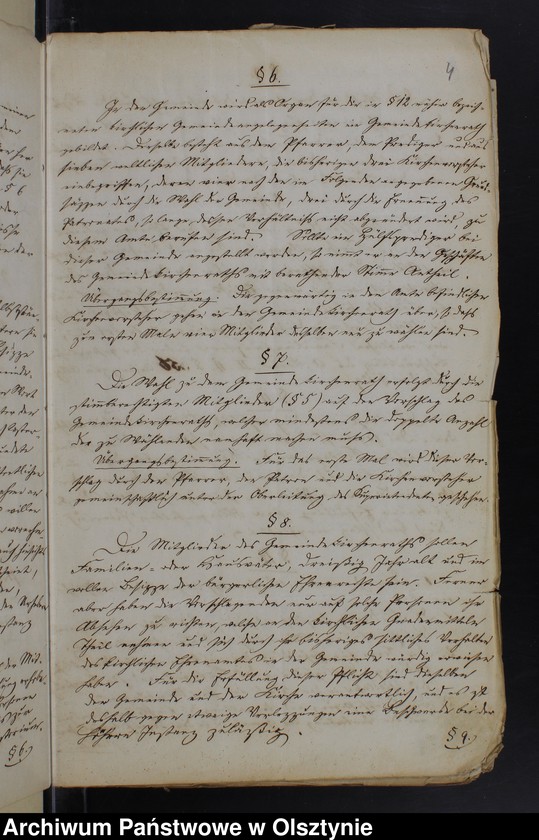 4
§ 6.
In der Gemeinde wird als Organ für die in § 12 näher bezeich-
neten kirchlichen Gemeindeangelegenheiten ein Gemeindekirchenrath
gebildet. Derselbe besteht aus dem Pfarrer, dem Prediger und aus
sieben weltlichen Mitgliedern, die bisherigen drei Kirchenvorsteher
einbegriffen, deren vier nach den im Folgenden angegebenen Grund-
sätzen durch die Wahl der Gemeinde, drei durch die Ernennung des
Patronates, so lange dessen Verhältniß nicht abgeändert wird, zu
diesem Amte berufen sind. Sollte ein Hülfsprediger bei
dieser Gemeinde angestellt werden, so nimmt er an den Geschäften
des Gemeindekirchenraths mit berathender Stimme Antheil.
Übergangsbestimmung: Die gegenwärtig in dem Amte befindlichen
Kirchenvorsteher gehen in den Gemeindekirchenrath über, so daß
zum ersten Male vier Mitglieder desselben neu zu wählen sind.
§ 7.
Die Wahl zu dem Gemeindekirchenrath erfolgt durch die
stimmberechtigten Mitglieder (§ 5) auf den Vorschlag des
Gemeindekirchenraths, welcher mindestens die doppelte Anzahl
der zu Wählenden namhaft machen muß.
Übergangsbestimmung. Für das erste Mal wird dieser Vor-
schlag durch den Pfarrer, den Patron und die Kirchenvorsteher
gemeinschaftlich unter der Oberleitung des Superintendenten geschehen.
§ 8.
Die Mitglieder des Gemeindekirchenraths sollen
Familien- oder Hausväter, dreißig Jahr alt und im
vollen Besitze der bürgerlichen Ehrenrechte sein. Ferner
aber haben die Vorschlagenden nur auf solche Personen ihr
Absehen zu richten, welche an den kirchlichen Gnadenmitteln
Theil nehmen und sich durch ihr bisheriges sittliches Verhalten
des kirchlichen Ehrenamtes in der Gemeinde würdig erwiesen
haben. Für die Erfüllung dieser Pflicht sind dieselben
der Gemeinde und der Kirche verantwortlich, und es ist
deshalb gegen etwaige Verletzungen eine Beschwerde bei der
höheren Instanz zulässig.
§ 9.
§ 6
§ 6.
Archiwum Państwowe w Olsztynie